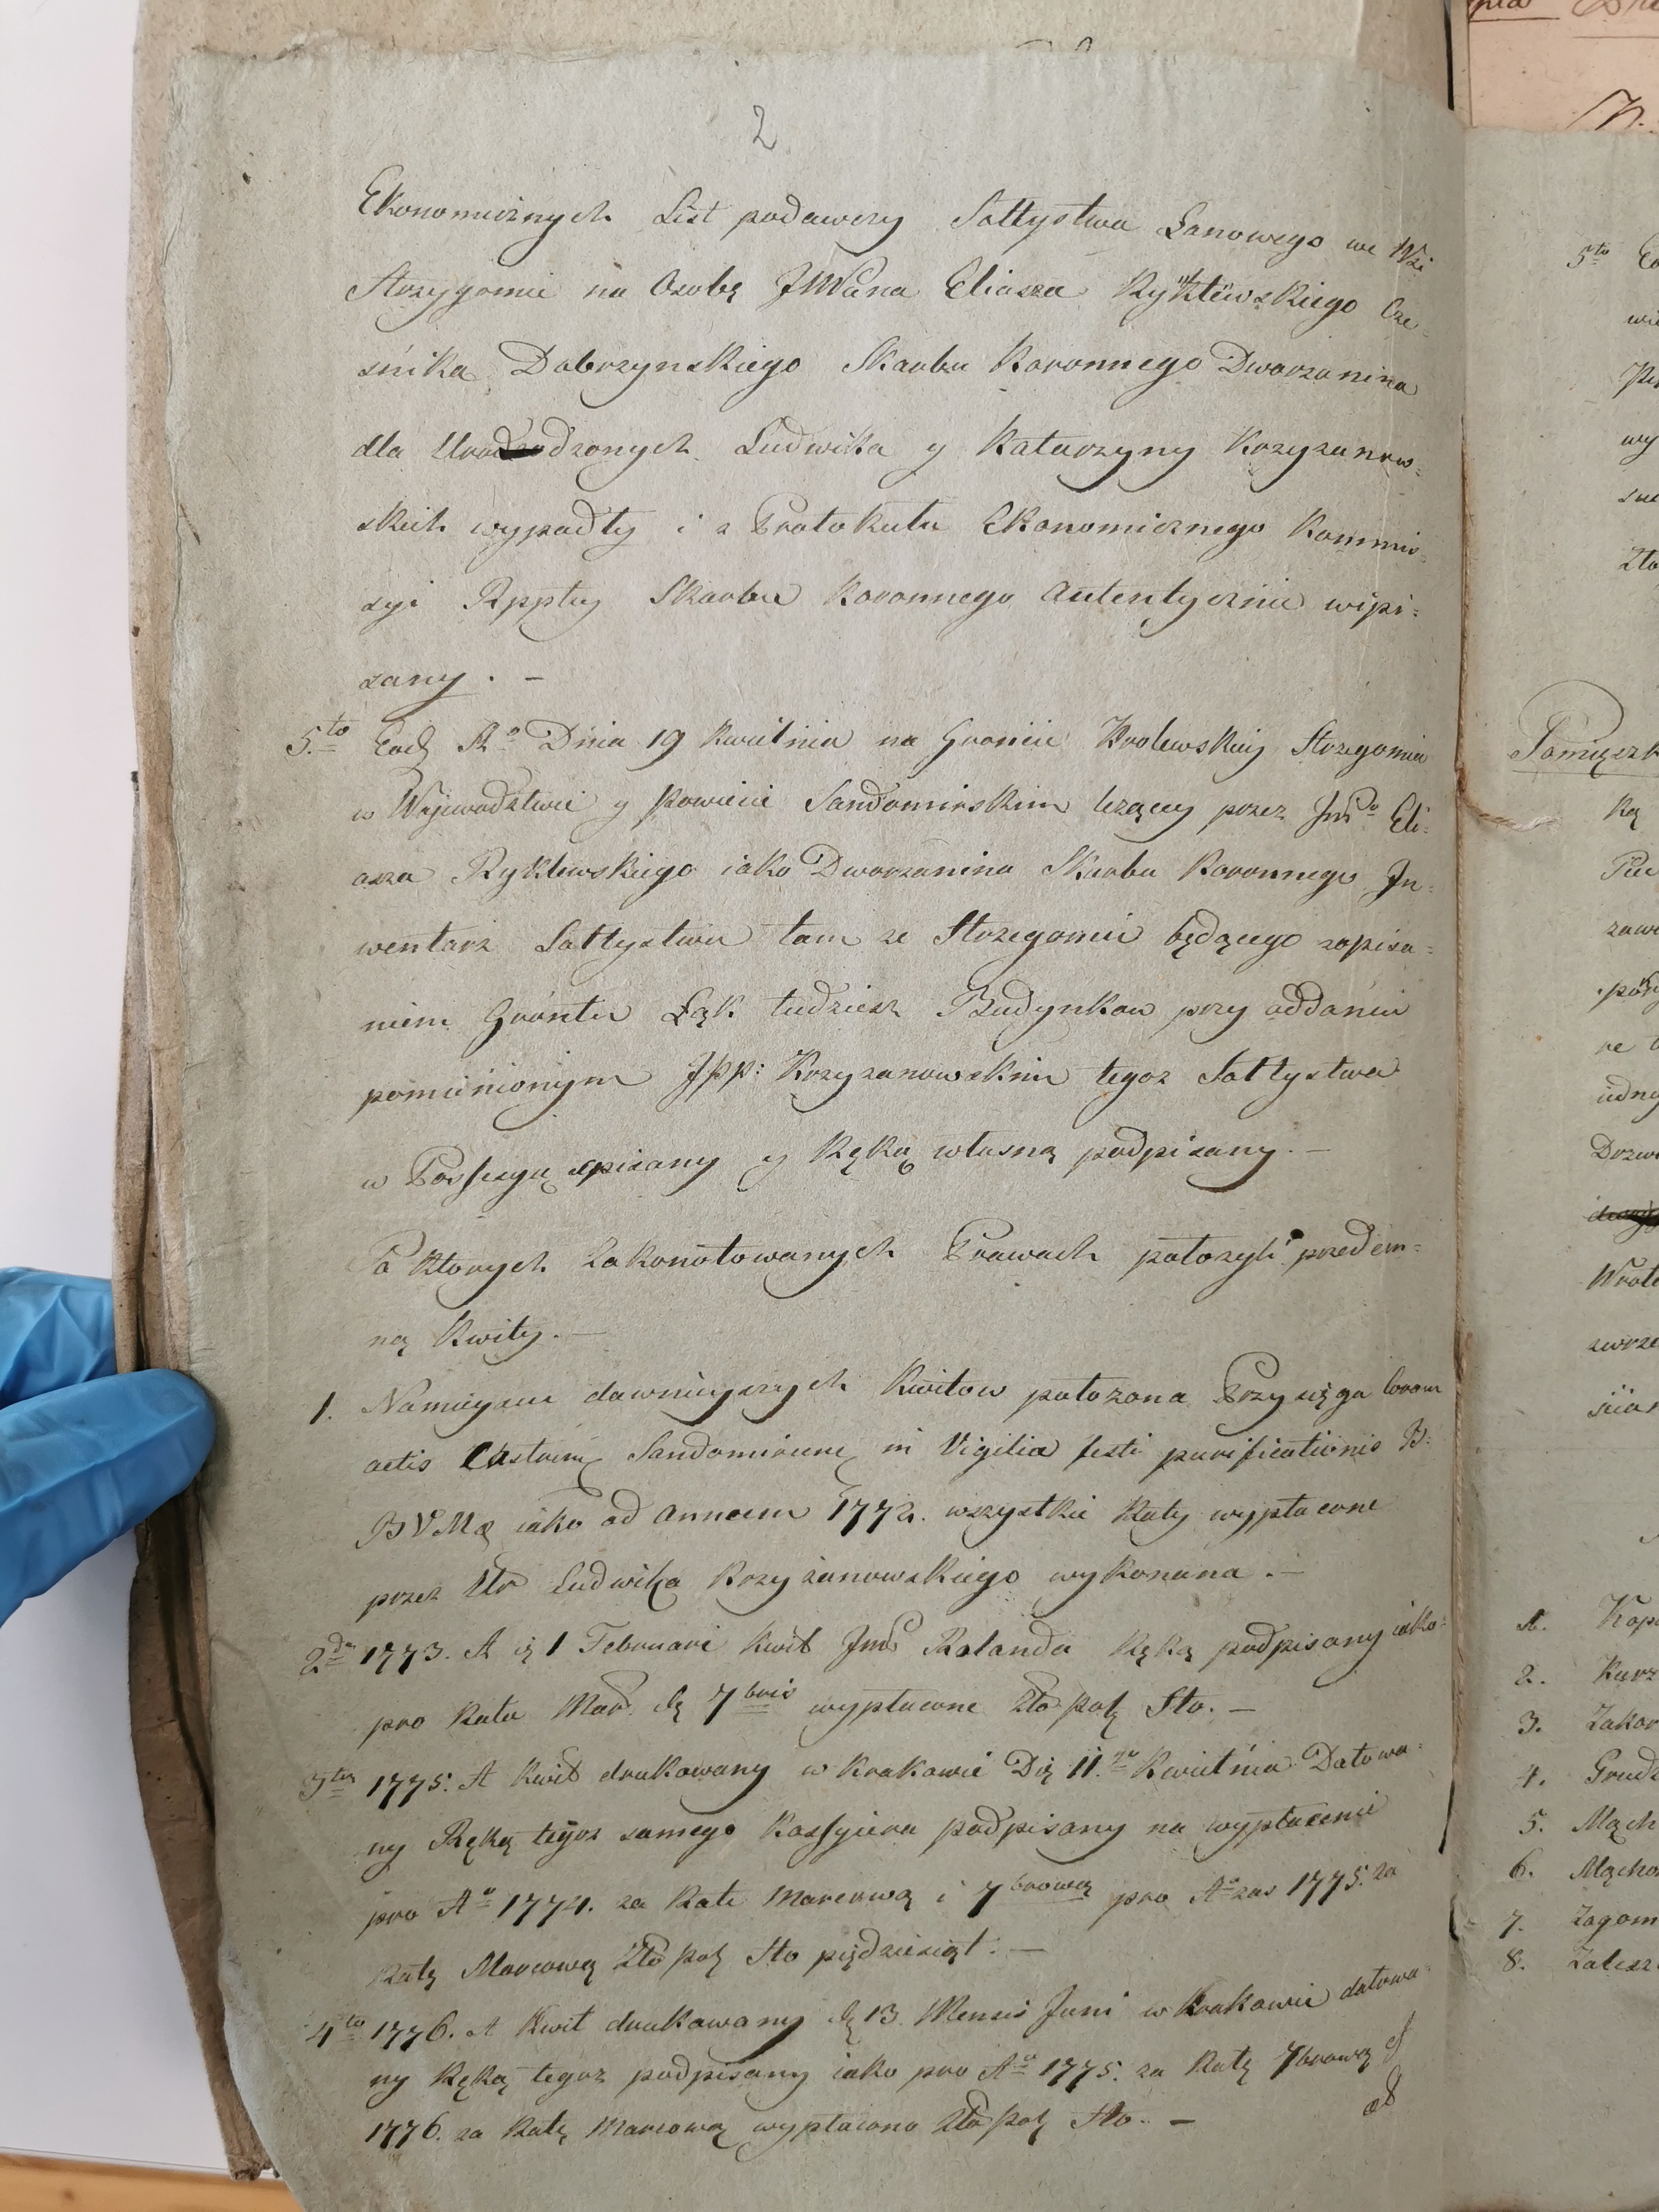 2
Ekonomicznych List podawczy Sołtystwa Łanowego we Wsi
Strzygomie na Osobę JWPana Eliasza Rykłewskiego Cze=
śnika Dobrzynskiego Skarbu Koronnego Dworzanina
dla Urodzonych Ludwika y Katarzyny Krzyzanow=
skich wypadły i z Protokułu Ekonomicznego Kommis=
syi Rppltey Skarbu Koronnego Autentycznie wipi=
sany. –
5to Eod Ao Dnia 19 Kwietnia na Groncie Krolewskiey Strzegomia
w Wojewodztwie y Powiecie Sandomirskim lezący przez Eli=
asza Ryklewskiego iako Dworzanina Skarbu Koronnego In=
wentarz Sołtystwa tam ze Strzegomiu będącego zopisa=
niem Gróntu Łąk tudziesz Budynkow przy oddaniu
pomienionym Jpp: Krzyzanowskim tegoz Sołtystwa
w Possesyą spisany y Ręką własną podpisany. –
Po Ktorych Zakonotowanych Prawach połozyli przedem=
ną Kwity. –
1. Namieysce dawnieyszych Kwitow połozona Przysięga Coram
actis Castren Sandomirien in Vigilia festi purificationis B:
BVMæ iako ad annum 1772. wszystkie Raty wypłacone
przez Ur Ludwika Krzyzanowskiego wykonana. –
2da 1773. A 1 Februari Kwit Rolanda Ręką podpisany iako=
pro Rata Mar. 7bris wypłacone Zło pol Sto. –
3tia 1775. A Kwit drukowany w Krakowie Dię 11go Kwietnia Datowa=
ny Ręką tegoz samego Kassyiera podpisany na wypłacenie
pro Ao 1774. za Rate Marcową i 7browę pro Ao zas 1775. za
Ratę Marcową Zło pol Sto piędziesiąt. –
4to 1776. A Kwit drukowany 13 Mensis Juni w Krakowie datowa=
ny Ręką tegoz podpisany iako pro Ao 1775. za Ratę 7browę
1776. za Ratę Marcową wypłacono Zło pol Sto. –
5to
1.
2.
3.
4.
5.
6.
7.
8.